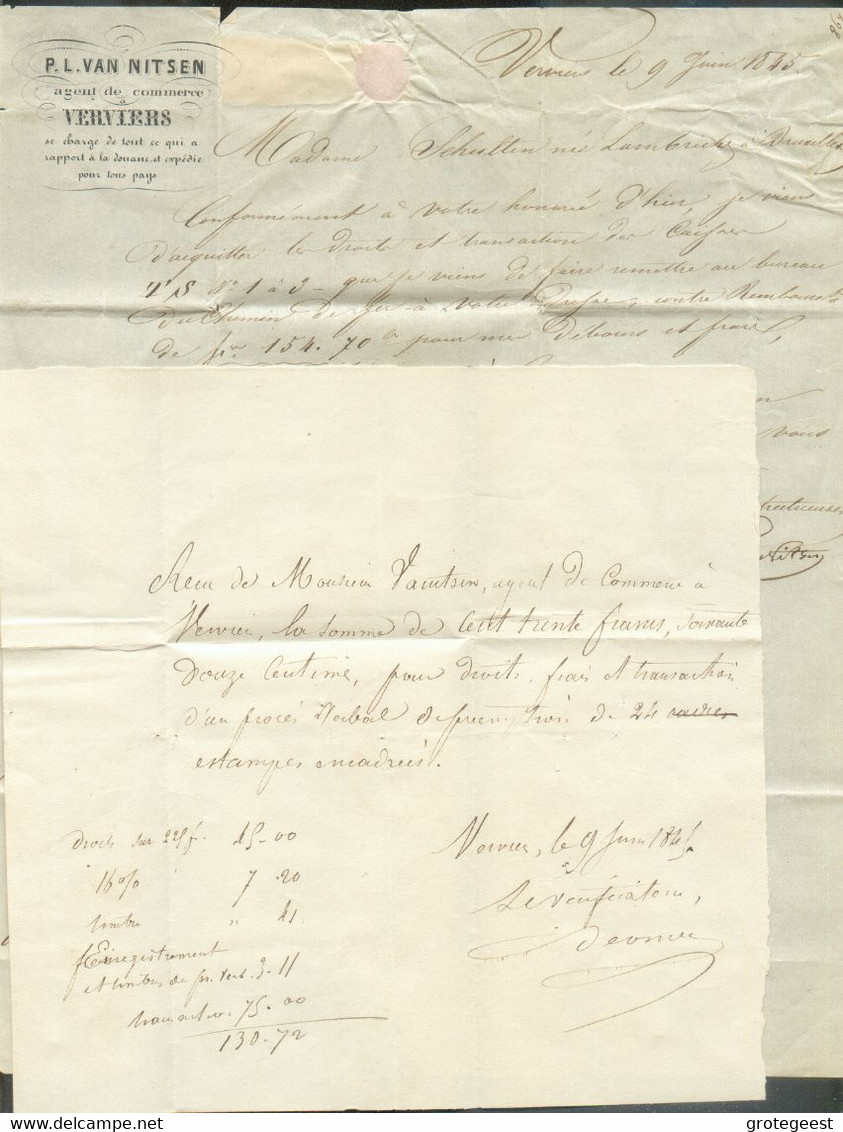 P. L. VAN NITSEN
agent de commerce
à
VERVIERS
se charge de tout ce qui a
rapport à la douane, et expédie
pour tous pays
Verviers le 9 Juin 1845
Madame Schulten née Lambrichs à Bruxelles
Conformément à votre honorée d'hier, je viens
d'acquitter les droits et transaction des Caisses
TS No 1 à 3 - que je viens de faire remettre au bureau
du Chemin de fer à votre adresse, contre Rembourst
de frs 154.70 cs pour mes débours et frais,
vous
Nitsen
Recu de Monsieur Vanitsen, agent de Commerce à
Vervier, la somme de Cent trente francs, soixante
douze Centime, pour droits, frais et transaction
d'un procès Verbal de préemption de 24 cadres
estampes encadrées.
droits sur 225 f. 45-00
16 % 7.20
timbre " 41
Enregistrement
et timbre du pr. verb. 3.11
transaction. 75.00
130-72
Vervier, le 9 Juin 1845
Le vérificateur,
www.delcampe.net
grotegeest